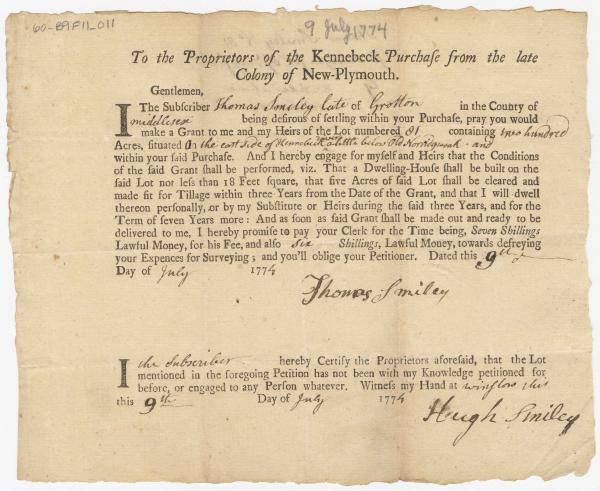 60-B9F11_011
9 July 1774
To the Proprietors of the Kennebeck Purchaſe from the late
Colony of New-Plymouth.
Gentlemen,
I The Subſcriber Thomas Smiley late of Grotton in the County of
middlesex being deſirous of ſettling within your Purchaſe, pray you would
make a Grant to me and my Heirs of the Lot numbered 81 containing two hundred
Acres, situated On the east side of Kennebeck a little below Old Norridgwak - and
within your ſaid Purchaſe. And I hereby engage for myſelf and Heirs that the Conditions
of the ſaid Grant ſhall be performed, viz. That a Dwelling-Houſe ſhall be built on the
ſaid Lot nor leſs than 18 Feet ſquare, that five Acres of ſaid Lot ſhall be cleared and
made fit for Tillage within three Years from the Date of the Grant, and that I will dwell
thereon perſonally, or by my Subſtitute or Heirs during the ſaid three Years, and for the
Term of ſeven Years more: And as ſoon as ſaid Grant ſhall be made out and ready to be
delivered to me, I hereby promiſe to pay your Clerk for the Time being, Seven Shillings
Lawful Money, for his Fee, and alſo six Shillings, Lawful Money, towards defreying
your Expences for Surveying; and you'll oblige your Petitioner. Dated this 9th
Day of July 1774
Thomas Smiley
I the Subscriber hereby Certify the Proprietors aforeſaid, that the Lot
mentioned in the foregoing Petition has not been with my Knowledge petitioned for
before, or engaged to any Perſon whatever. Witneſs my Hand at winslow this
this 9th Day of July 1774
Hugh Smiley